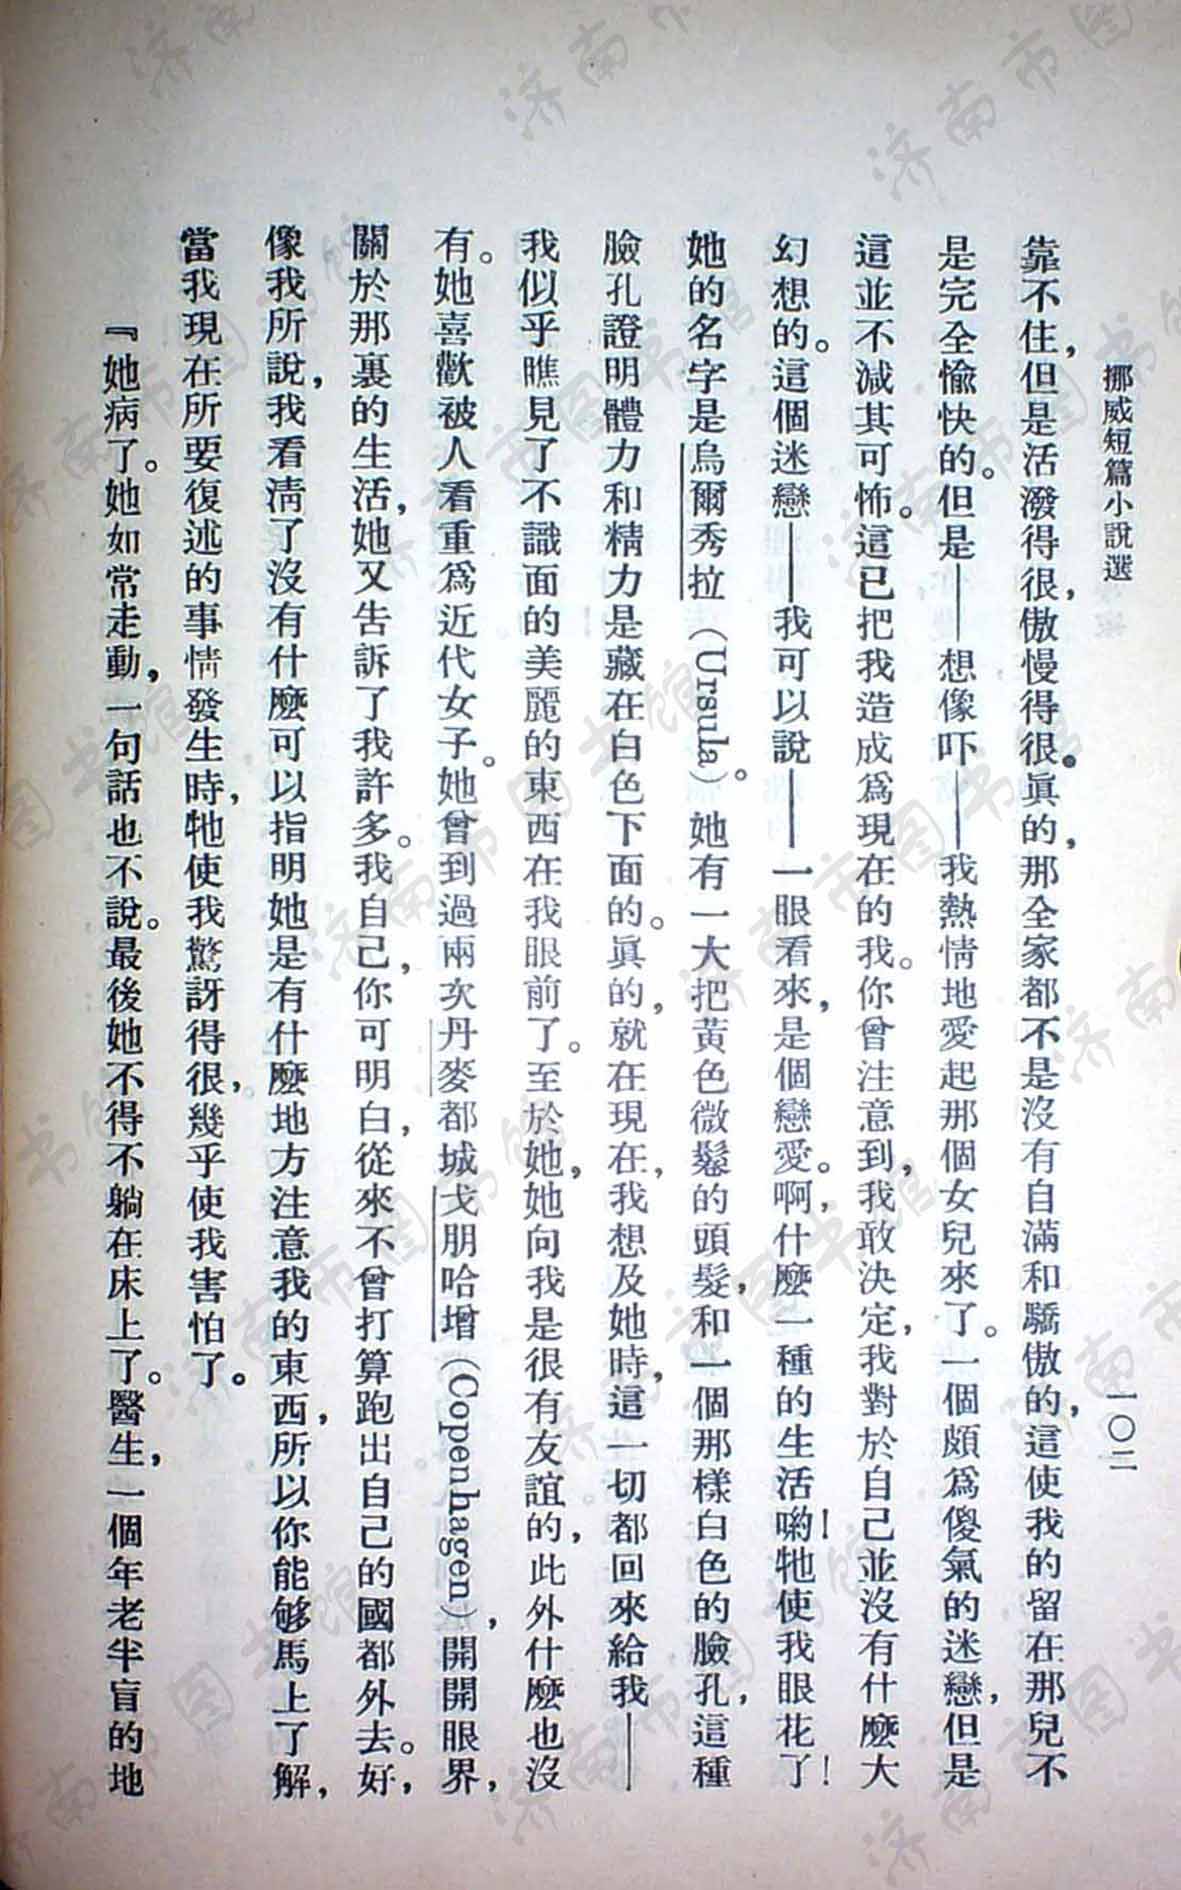 挪威短篇小說選
一〇二
靠不住，但是活潑得很，傲慢得很。眞的，那全家都不是沒有自滿和驕傲的，這使我的留在那兒不
是完全愉快的。但是——想像吓——我熱情地愛起那個女兒來了。一個頗爲傻氣的迷戀，但是
這並不減其可怖。這已把我造成爲現在的我。你曾注意到，我敢決定，我對於自己並沒有什麼大
幻想的。這個迷戀——我可以說——一眼看來，是個戀愛。啊，什麼一種的生活喲！牠使我眼花了！
她的名字是烏爾秀拉（Ursula）。她有一大把黃色微鬈的頭髮，和一個那樣白色的臉孔，這種
臉孔證明體力和精力是藏在白色下面的。眞的，就在現在，我想及她時，這一切都回來給我——
我似乎瞧見了不識面的美麗的東西在我眼前了。至於她，她向我是很有友誼的，此外什麼也沒
有。她喜歡被人看重爲近代女子。她曾到過兩次丹麥都城戈朋哈增（Copenhagen），開開眼界，
關於那裏的生活，她又告訴了我許多。我自己，你可明白，從來不曾打算跑出自己的國都外去。好，
像我所說，我看淸了沒有什麼可以指明她是有什麼地方注意我的東西，所以你能够馬上了解，
當我現在所要復述的事情發生時，牠使我驚訝得很，幾乎使我害怕了。
『她病了。她如常走動，一句話也不說。最後她不得不躺在床上了。醫生，一個年老半盲的地
济南市图书馆